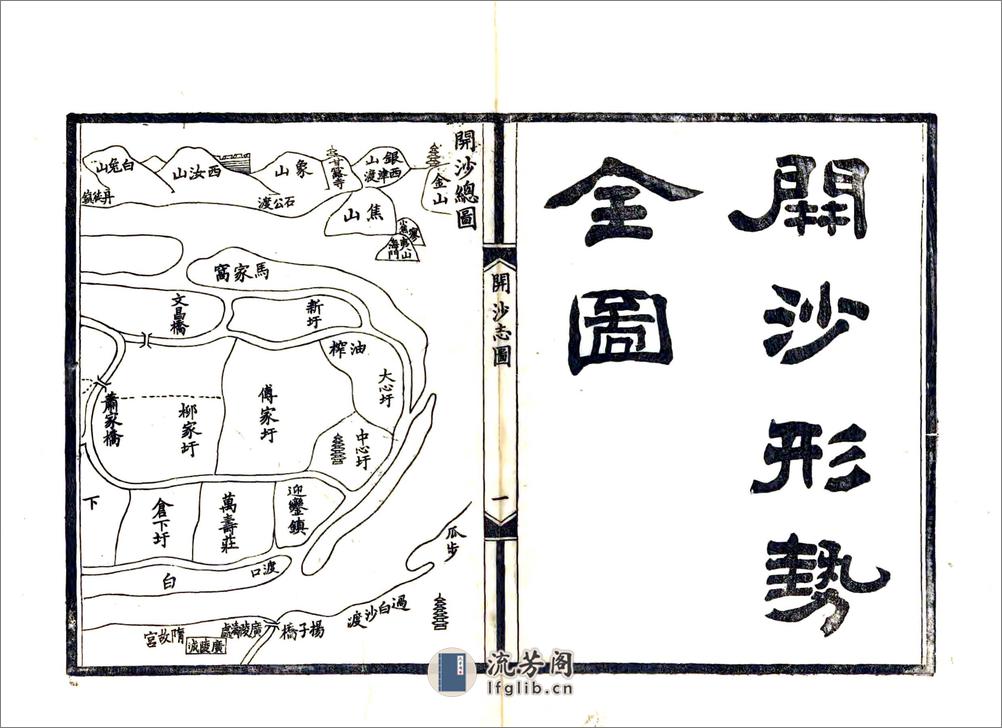 開沙形勢
全圖
開沙志圖
一
開沙總圖
金山
銀山
西津渡
甘露寺
象山
西汝山
白兔山
丹徒鎮
石公渡
焦山
海門
馬家窩
文昌橋
新圩
油榨
大心圩
中心圩
傅家圩
柳家圩
蕭家橋
迎鑾鎮
萬壽莊
倉下圩
下
白
渡口
瓜步
過白沙渡
揚子橋
廣陵濤處
廣陵城
隋故宮
流芳阁
lfglib.cn